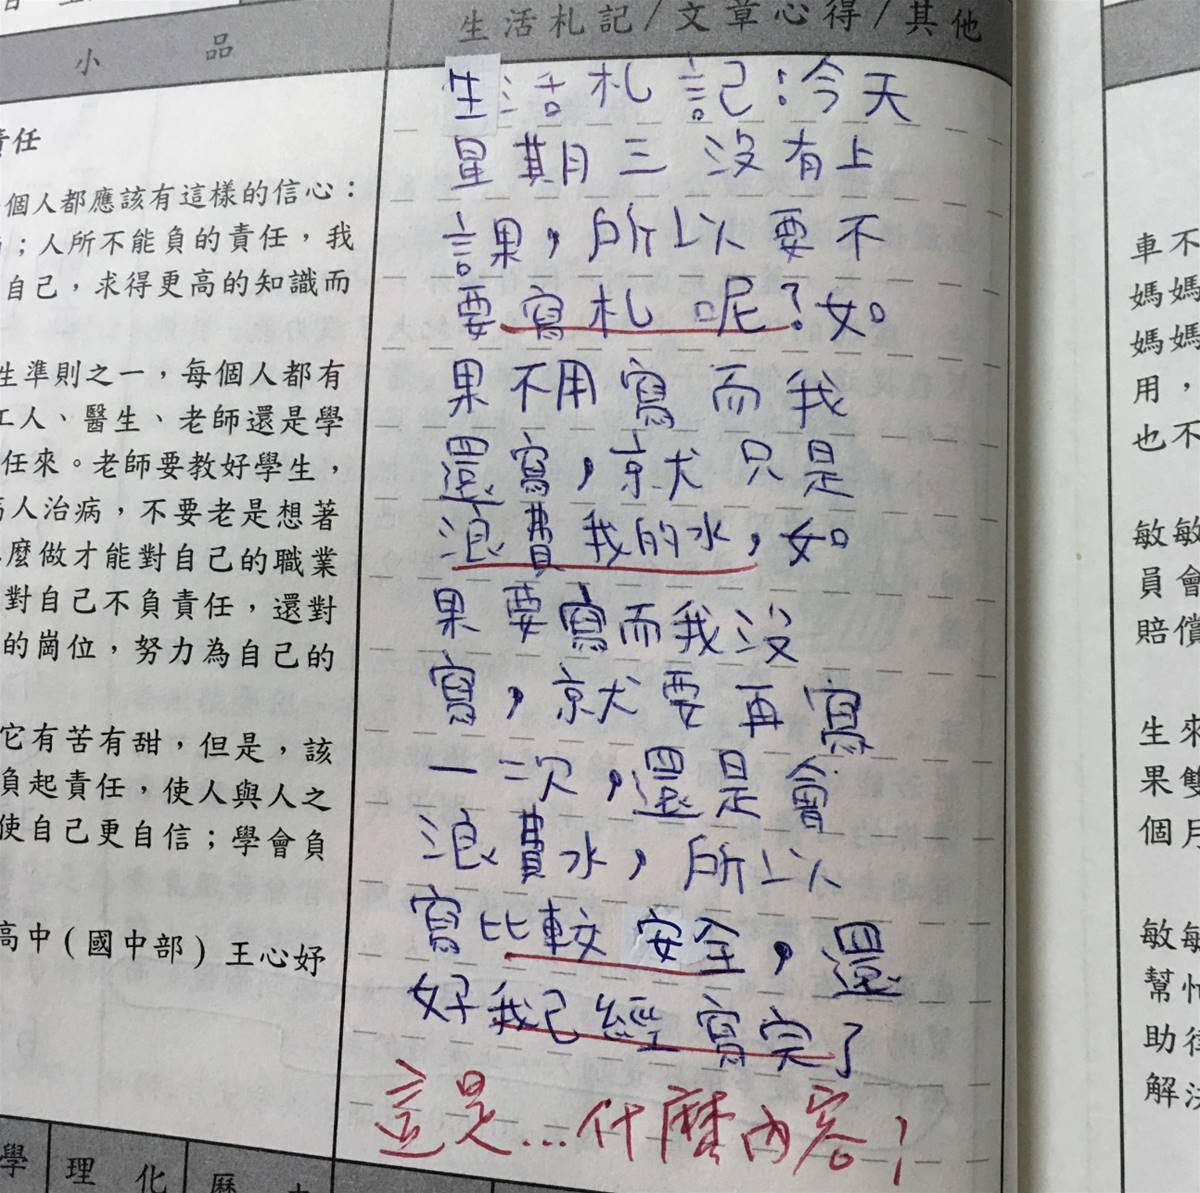 小 品
生活札記/文章心得/其他
責任
個人都應該有這樣的信心：
；人所不能負的責任，我
自己，求得更高的知識而
生準則之一，每個人都有
工人、醫生、老師還是學
任來。老師要教好學生，
病人治病，不要老是想著
麼做才能對自己的職業
對自己不負責任，還對
的崗位，努力為自己的
它有苦有甜，但是，該
負起責任，使人與人之
使自己更自信；學會負
高中(國中部) 王心妤
生活札記：今天
星期三沒有上
課，所以要不
要寫札呢？如
果不用寫而我
還寫，就只是
浪費我的水，如
果要寫而我沒
寫，就要再寫
一次，還是會
浪費水，所以
寫比較安全，還
好我已經寫完了
這是...什麼內容！
學
理 化
歷
車不
媽媽
媽媽
用，
也不
敏敏
員會
賠償
生來
果雙
個月
敏敏
幫忙
助律
解決